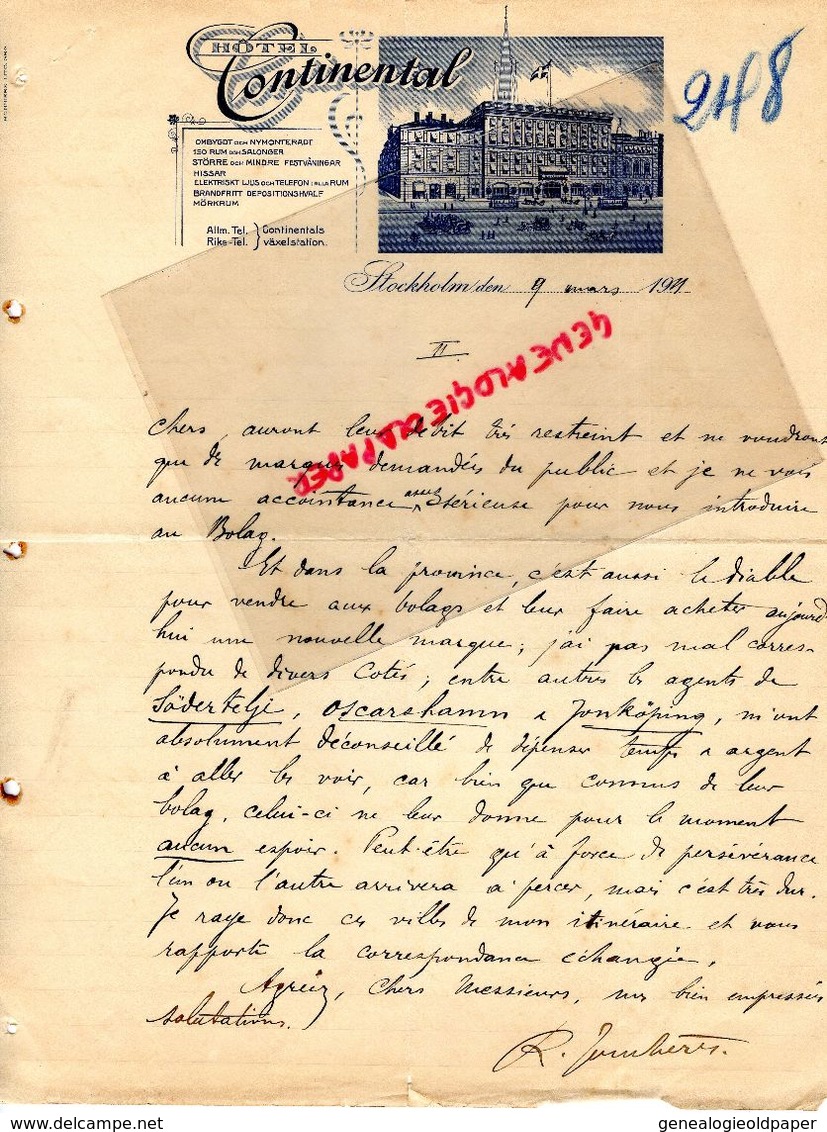 HÔTEL
Continental
248
OMBYGDT OCH NYMONTERADT
150 RUM OCH SALONGER
STÖRRE OCH MINDRE FESTVÅNINGAR
HISSAR
ELEKTRISKT LJUS OCH TELEFON I ALLA RUM
BRANDFRITT DEPOSITIONSHVALF
MÖRKRUM
Allm. Tel. } Continentals
Riks-Tel. växelstation.
Stockholm den 9 mars 1911
II.
GENEALOGIE OLD PAPER
chers, auront leur débit très restreint et ne voudront
que de marques demandées du public et je ne vois
aucune accointance assez sérieuse pour nous introduire
au Bolag.
Et dans la province, c'est aussi le diable
pour vendre aux bolags et leur faire acheter aujourd'
hui une nouvelle marque; j'ai pas mal corres-
pondu de divers cotés; entre autres les agents de
Södertelje, Oscarshamn & Jonköping, m'ont
absolument déconseillé de dépenser temps & argent
à aller les voir, car bien que connus de leur
bolag, celui-ci ne leur donne pour le moment
aucun espoir. Peut-être qu'à force de persévérance
l'un ou l'autre arrivera à percer, mais c'est très dur.
Je raye donc ces villes de mon itinéraire et vous
rapporte la correspondance échangée.
Agréez, Chers Messieurs, mes bien empressés
salutations.
R.
genealogieoldpaper